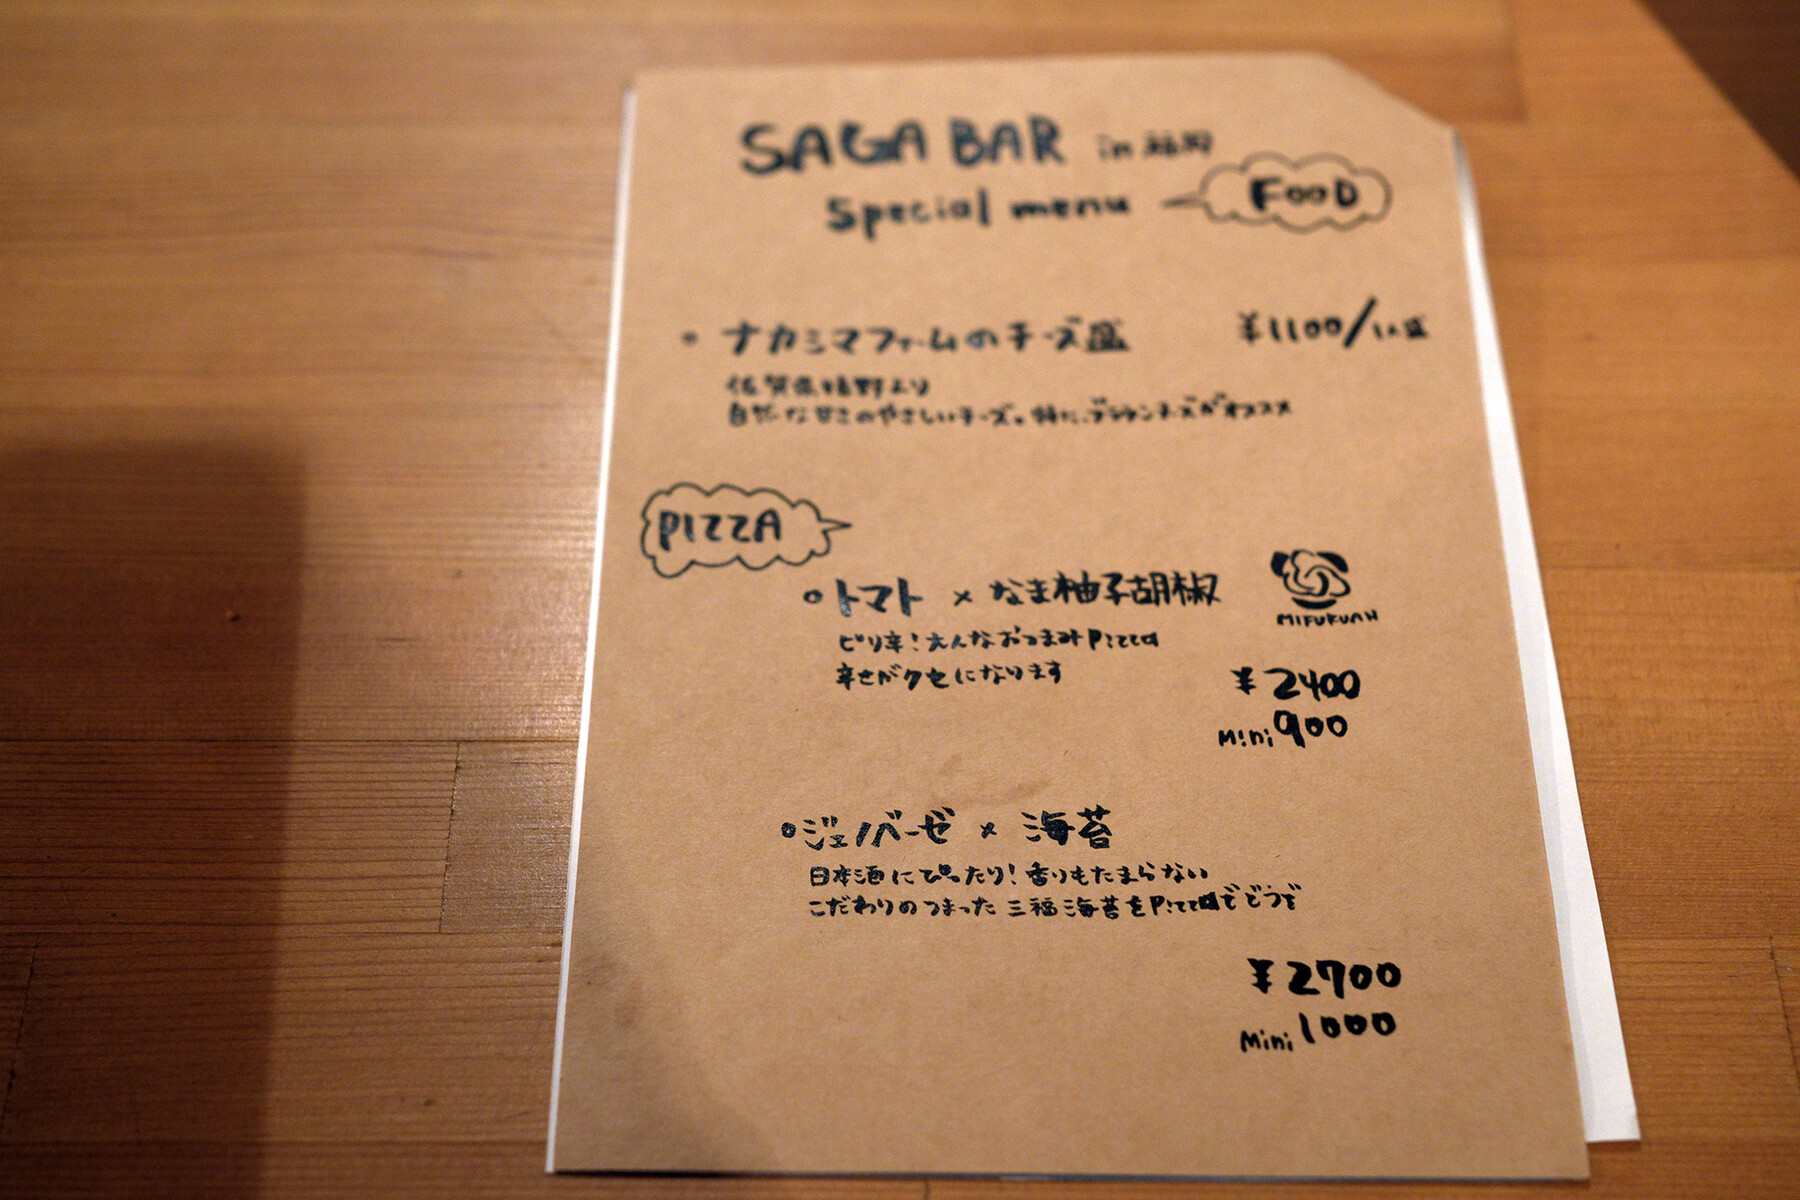 SAGA BAR in 福岡
Special menu FOOD
ナカシマファームのチーズ盛 ¥1100/1人盛
佐賀県嬉野より
自然な甘さのやさしいチーズ。特に、ブラウンチーズがオススメ
PIZZA
トマト × なま柚子胡椒
MIFUKUAN
ピリ辛！大人なおつまみPizza
辛さがクセになります
¥2400
Mini 900
ジェノバーゼ × 海苔
日本酒にぴったり！香りもたまらない
こだわりのつまった三福海苔をPizzaでどうぞ
¥2700
Mini 1000